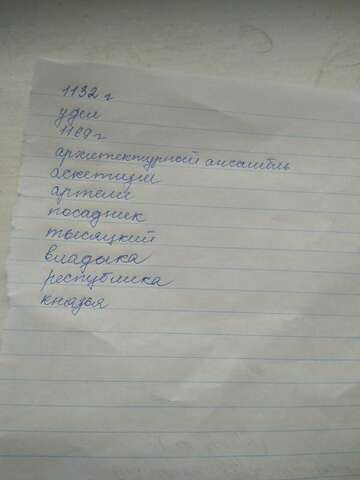 1132 г
удел
1169 г
архитектурной ансамбль
аскетизм
артели
посадник
тысяцкий
владыка
республика
князья